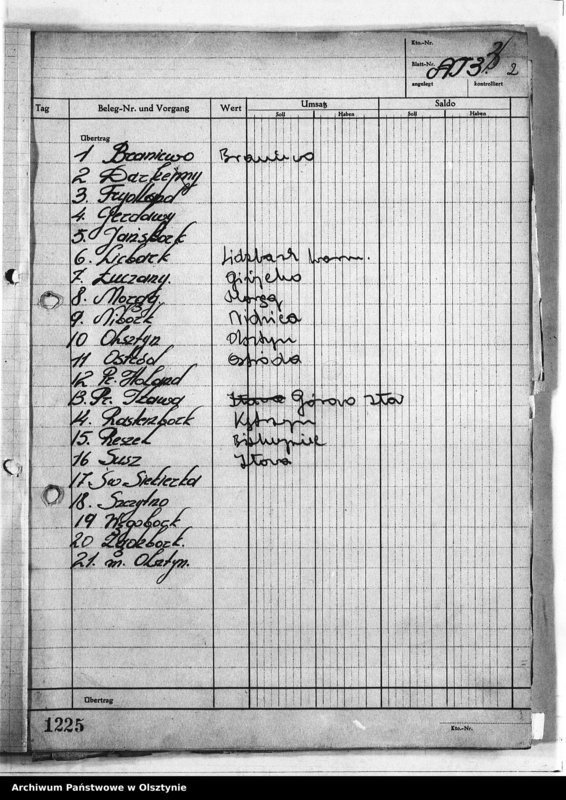 Kto.-Nr.
Blatt-Nr. 2
angelegt kontrolliert
Tag Beleg-Nr. und Vorgang Wert Umsatz Saldo
Soll Haben Soll Haben
Übertrag
1 Braniewo Braniewo
2 Darkejmy
3. Frydland
4. Gerdawy
5. Jańsbork
6. Licbark Lidzbark Warm.
7. Łuczany. Giżycko
8. Morąg. Morąg
9. Nibork Nidzica
10 Olsztyn Olsztyn
11 Ostród Ostróda
12 Pr. Holand
13. Pr. Iława Iława Górowo Iław
14. Rastenbork Kętrzyn
15. Reszel Biskupiec
16 Susz Iława
17 Św Siekierka
18. Szczytno
19 Węgobork
20 Ządzbork.
21. m. Olsztyn.
Übertrag
1225
Kto.-Nr.
Archiwum Państwowe w Olsztynie